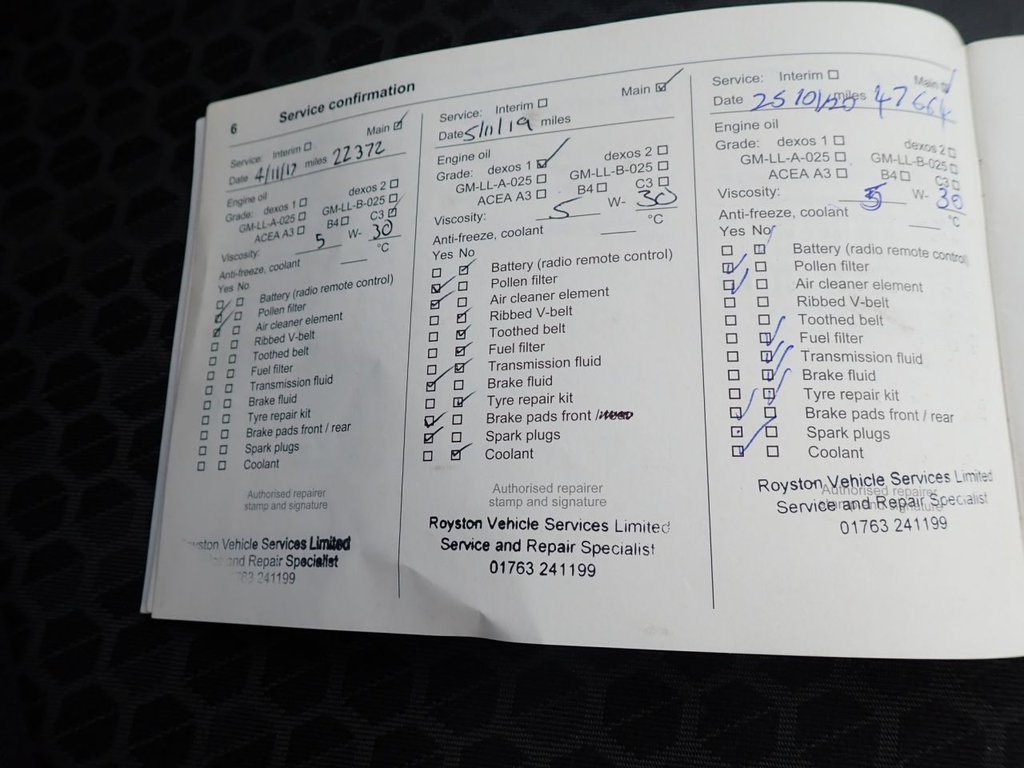 6 Service confirmation
Service: Interim ☐ Main ☑
Date 4/11/17 miles 22372
Engine oil
Grade: dexos 1 ☐ dexos 2 ☐
GM-LL-A-025 ☐ GM-LL-B-025 ☐
ACEA A3 ☐ B4 ☐ C3 ☑
Viscosity: 5 W- 30
Anti-freeze, coolant °C
Yes No
Battery (radio remote control)
Pollen filter
Air cleaner element
Ribbed V-belt
Toothed belt
Fuel filter
Transmission fluid
Brake fluid
Tyre repair kit
Brake pads front / rear
Spark plugs
Coolant
Authorised repairer
stamp and signature
Royston Vehicle Services Limited
and Repair Specialist
241199
Service: Interim ☐ Main ☑
Date 5/11/19 miles
Engine oil
Grade: dexos 1 ☑ dexos 2 ☐
GM-LL-A-025 ☐ GM-LL-B-025 ☐
ACEA A3 ☐ B4 ☐ C3 ☐
Viscosity: 5 W- 30
Anti-freeze, coolant °C
Yes No
Battery (radio remote control)
Pollen filter
Air cleaner element
Ribbed V-belt
Toothed belt
Fuel filter
Transmission fluid
Brake fluid
Tyre repair kit
Brake pads front /
Spark plugs
Coolant
Authorised repairer
stamp and signature
Royston Vehicle Services Limited
Service and Repair Specialist
01763 241199
Service: Interim ☐ Main ☑
Date 25/10/20 miles 47664
Engine oil
Grade: dexos 1 ☐ dexos 2 ☐
GM-LL-A-025 ☐ GM-LL-B-025 ☐
ACEA A3 ☐ B4 ☐ C3 ☐
Viscosity: 5 W- 30
Anti-freeze, coolant °C
Yes No
Battery (radio remote control)
Pollen filter
Air cleaner element
Ribbed V-belt
Toothed belt
Fuel filter
Transmission fluid
Brake fluid
Tyre repair kit
Brake pads front / rear
Spark plugs
Coolant
Authorised repairer
stamp and signature
Royston Vehicle Services Limited
Service and Repair Specialist
01763 241199